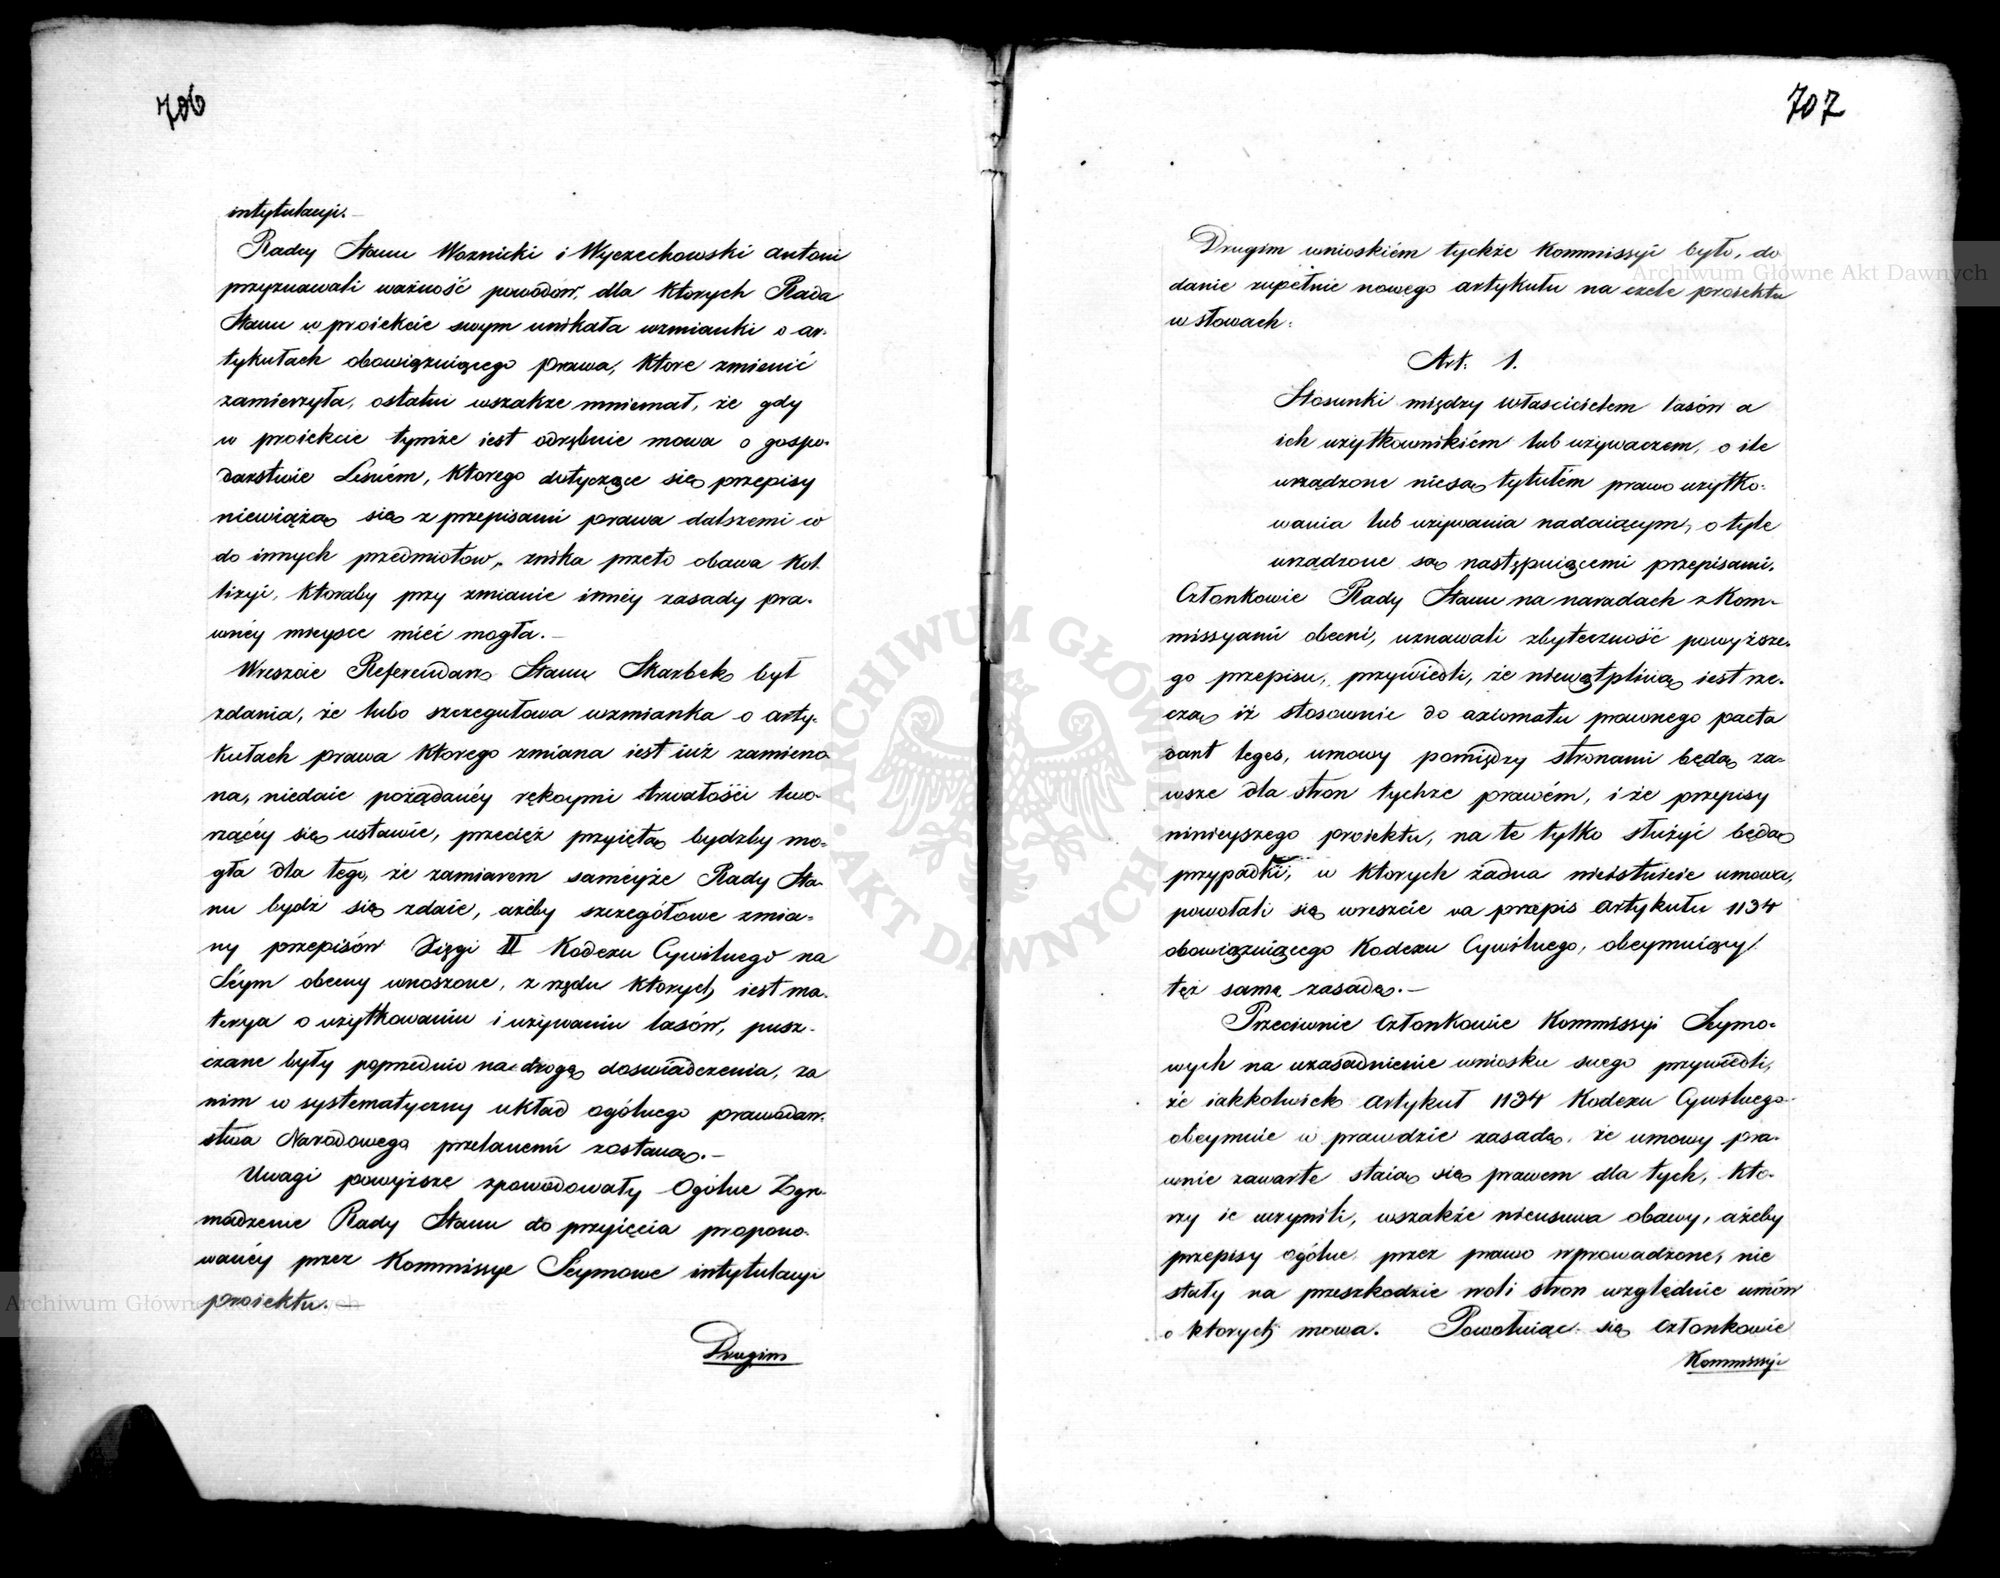 706
intytulacyi.—
Radcy Stanu Woznicki i Wyczechowski Antoni
przyznawali ważność powodów, dla ktorych Rada
Stanu w proiekcie swym unikała wzmianki o ar-
tykułach obowiązuiącego prawa, ktore zmienić
zamierzyła, ostatni wszakże mniemał, że gdy
w proiekcie tymże iest odrębnie mowa o gospo-
darstwie Leśném, ktorego dotyczące się przepisy
niewiążą się z przepisami prawa dalszemi co
do innych przedmiotow, znika przeto obawa kol-
lizyi, ktoraby przy zmianie innéy zasady pra-
wnéy mieysce mieć mogła.—
Wreszcie Referendarz Stanu Skarbek był
zdania, że lubo szczegułowa wzmianka o arty-
kułach prawa ktorego zmiana iest iuż zamierzo-
na, niedaie pożądanéy rękoymi trwałości two-
rzącéy się ustawie, przecież przyiętą bydzby mo-
gła dla tego, że zamiarem saméyże Rady Sta-
nu bydź się zdaie, ażeby szczegółowe zmia-
ny przepisów Xięgi II Kodexu Cywilnego na
Séym obecny wnoszone, z rzędu ktorych iest ma-
terya o użytkowaniu i używaniu lasów, pusz-
czane były poprzednio na drogę doswiadczenia, za
nim w systematyczny układ ogólnego prawodaw-
stwa Narodowego przelanemi zostaną.—
Uwagi powyższe spowodowały Ogólne Zgro-
madzenie Rady Stanu do przyięcia propono-
wanéy przez Kommissye Seymowe intytulacyi
proiektu.—
Drugim
707
Drugim wnioskiém tychże Kommissyi było, do
danie zupełnie nowego artykułu na czele proiektu
w słowach:
Art: 1.
Stosunki między właścicielem lasów a
ich użytkownikiém lub używaczem, o ile
urządzone niesą tytułém prawo użytko-
wania lub używania nadaiącym, o tyle
urządzone są następuiącemi przepisami.
Członkowie Rady Stanu na naradach z Kom-
missyami obecni, uznawali zbyteczność powyższe-
go przepisu, przywiedli, że niewątpliwą iest rze-
czą iż stosownie do axiomatu prawnego pacta
dant leges, umowy pomiędzy stronami będą za-
wsze dla stron tychże prawém, i że przepisy
ninieyszego proiektu, na te tylko służyć będą
przypadki, w ktorych żadna nieistnieie umowa,
powołali się wreszcie na przepis Artykułu 1134
obowiązuiącego Kodexu Cywilnego, obeymuiący
też samą zasadę.—
Przeciwnie Członkowie Kommissyi Seymo-
wych na uzasadnienie wniosku swego przywiedli,
że iakkolwiek Artykuł 1134 Kodexu Cywilnego
obeymuie w prawdzie zasadę, że umowy pra-
wnie zawarte staią się prawem dla tych, kto-
rzy ie uczynili, wszakże nieusuwa obawy, ażeby
przepisy ogólne przez prawo wprowadzone, nie
stały na przeszkodzie woli stron względnie umów
o ktorych mowa. Powołuiąc się Członkowie
Kommissyi
Archiwum Główne Akt Dawnych
Archiwum Główne Akt Dawnych
ARCHIWUM GŁÓWNE AKT DAWNYCH